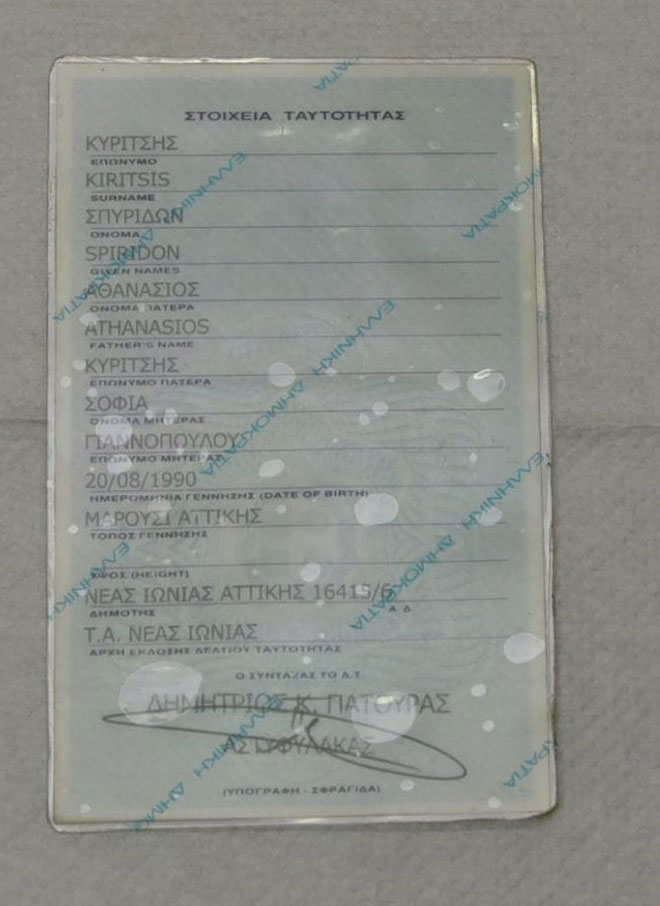 ΣΤΟΙΧΕΙΑ ΤΑΥΤΟΤΗΤΑΣ
ΚΥΡΙΤΣΗΣ
ΕΠΩΝΥΜΟ
KIRITSIS
SURNAME
ΣΠΥΡΙΔΩΝ
ΟΝΟΜΑ
SPIRIDON
GIVEN NAMES
ΑΘΑΝΑΣΙΟΣ
ΟΝΟΜΑ ΠΑΤΕΡΑ
ATHANASIOS
FATHER'S NAME
ΚΥΡΙΤΣΗΣ
ΕΠΩΝΥΜΟ ΠΑΤΕΡΑ
ΣΟΦΙΑ
ΟΝΟΜΑ ΜΗΤΕΡΑΣ
ΓΙΑΝΝΟΠΟΥΛΟΥ
ΕΠΩΝΥΜΟ ΜΗΤΕΡΑΣ
20/08/1990
ΗΜΕΡΟΜΗΝΙΑ ΓΕΝΝΗΣΗΣ (DATE OF BIRTH)
ΜΑΡΟΥΣΙ ΑΤΤΙΚΗΣ
ΤΟΠΟΣ ΓΕΝΝΗΣΗΣ
ΥΨΟΣ (HEIGHT)
ΝΕΑΣ ΙΩΝΙΑΣ ΑΤΤΙΚΗΣ 16415/6
ΔΗΜΟΤΗΣ Α.Δ
Τ.Α. ΝΕΑΣ ΙΩΝΙΑΣ
ΑΡΧΗ ΕΚΔΟΣΗΣ ΔΕΛΤΙΟΥ ΤΑΥΤΟΤΗΤΑΣ
Ο ΣΥΝΤΑΞΑΣ ΤΟ Δ.Τ.
ΔΗΜΗΤΡΙΟΣ Κ. ΠΑΤΟΥΡΑΣ
ΑΣΤΥΦΥΛΑΚΑΣ
(ΥΠΟΓΡΑΦΗ - ΣΦΡΑΓΙΔΑ)
ΕΛΛΗΝΙΚΗ ΔΗΜΟΚΡΑΤΙΑ
ΕΛΛΗΝΙΚΗ ΔΗΜΟΚΡΑΤΙΑ
ΕΛΛΗΝΙΚΗ ΔΗΜΟΚΡΑΤΙΑ